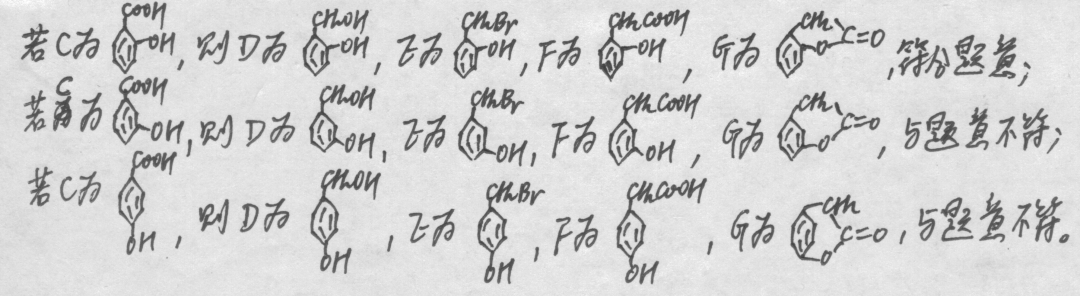 若C为 COOH OH, 则D为 CH₂OH OH, E为 CH₂Br OH, F为 CH₂COOH OH, G为 CH₂ O C=O, 符合题意;
若C为 COOH OH, 则D为 CH₂OH OH, E为 CH₂Br OH, F为 CH₂COOH OH, G为 CH₂ O C=O, 与题意不符;
若C为 COOH OH, 则D为 CH₂OH OH, E为 CH₂Br OH, F为 CH₂COOH OH, G为 CH₂ O C=O, 与题意不符。